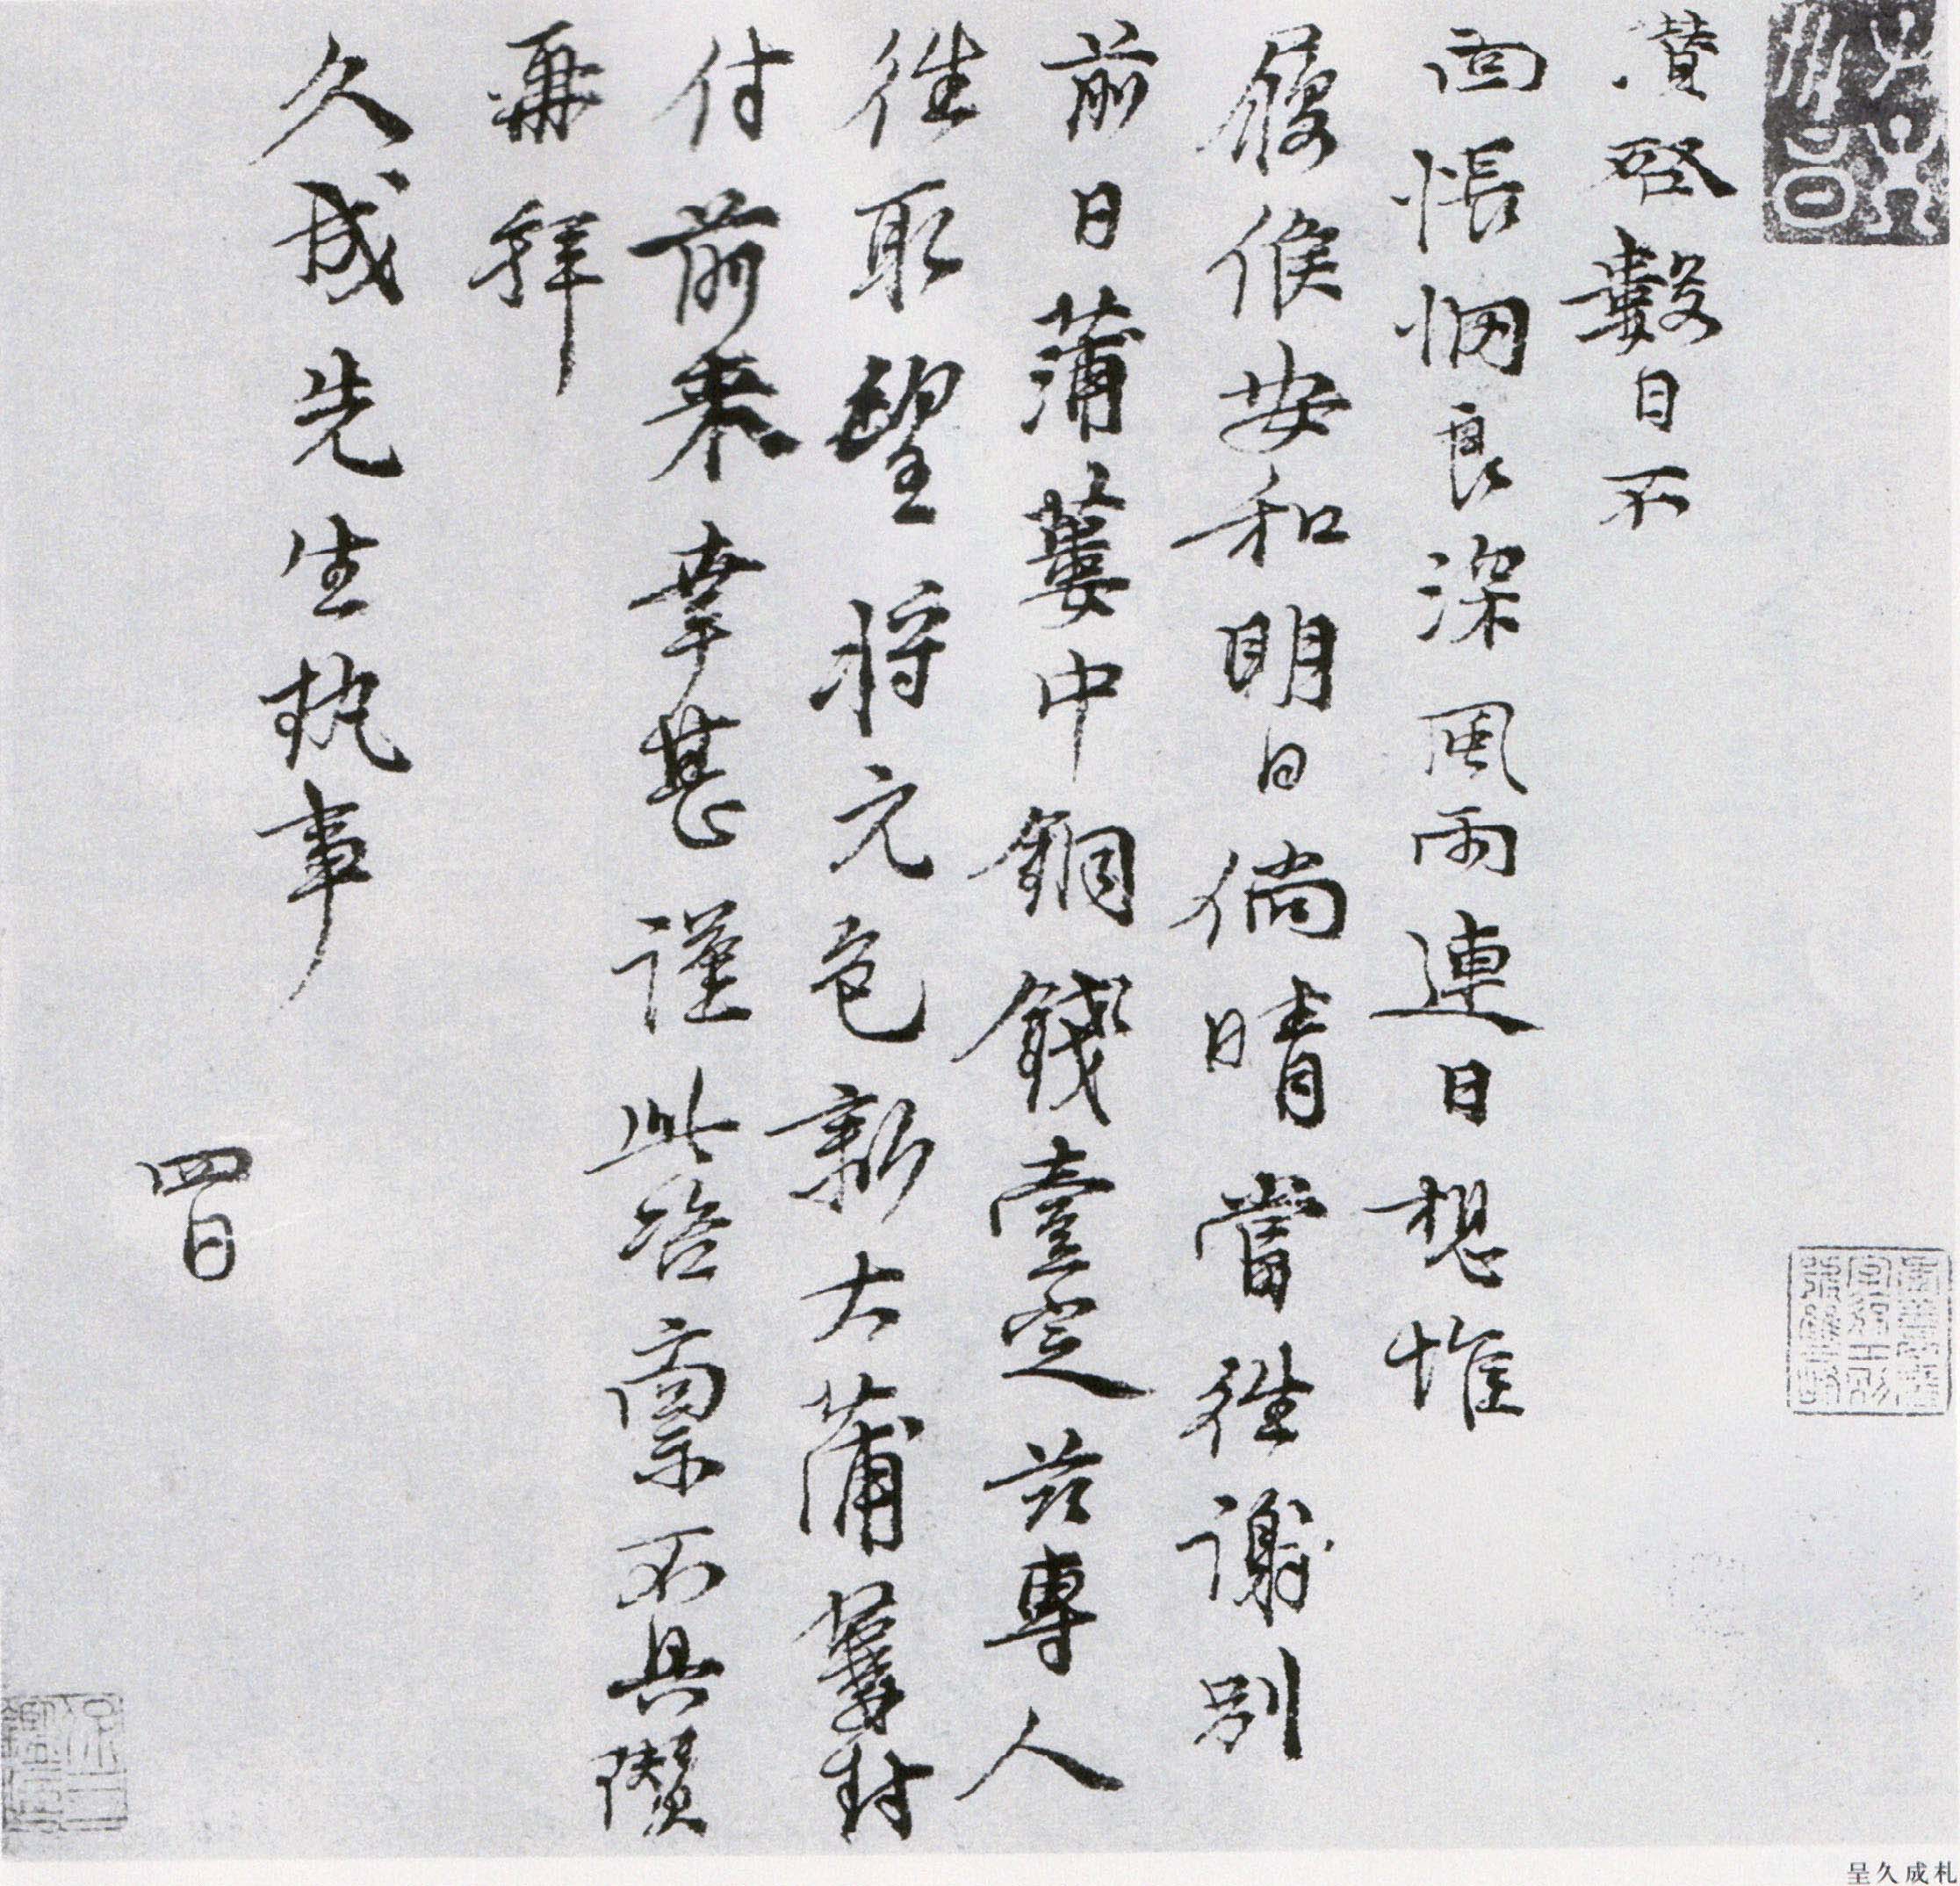 瓚啓數日不
面悵惘良深風雨連日想惟
履候安和明日倘晴當往謝別
前日蒲蔞中銅錢壹定茲專人
往取望將元色新大蒲蔞封
付前來幸甚謹此咨稟不具瓚
再拜
久成先生執事
四日
呈久成札